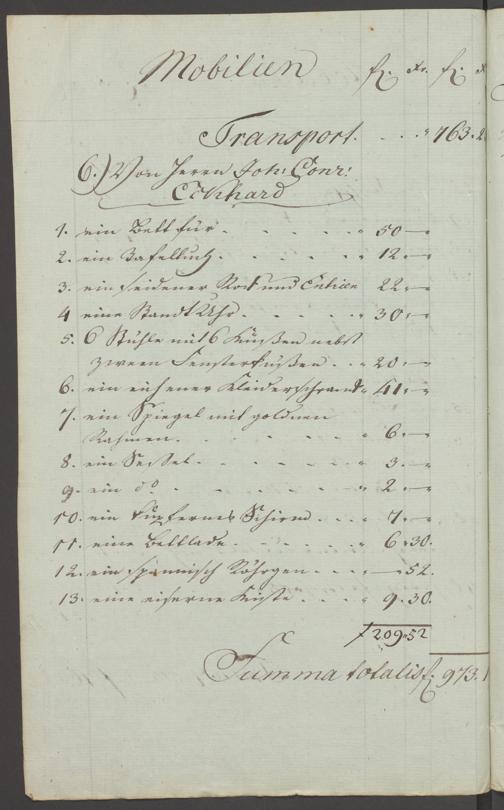 Mobilien fl. Xr. fl.
Transport . . . " 763. 2
6.) Von Herrn Joh: Conr:
Eckhard
1. ein Bett für . . . . . " 50 —"
2. ein Tafeltuch . . . . . " 12 —"
3. ein seidener Rock und 22 —"
4 eine Standt Uhr . . . . . " 30 —"
5. 6 Stühle mit 6 Küßen nebst
zween Fensterküßen . . . " 20 —"
6. ein eichener Kleiderschrank " 41 —"
7. ein Spiegel mit goldnen
Rahmen . . . . . . " 6 —"
8. ein Sessel . . . . . " 3 —"
9. ein do . . . . . " 2 —"
10. ein kupfernes Schirm . . . " 7 —"
11. eine Bettlade . . . . . 6. 30.
12. ein spannisch Röhrgen . . . . — 52.
13. eine eiserne Kiste . . . " 9. 30.
f 209. 52
Summa totalis f. 973. 1